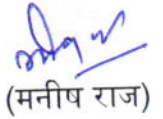 (मनीष राज)